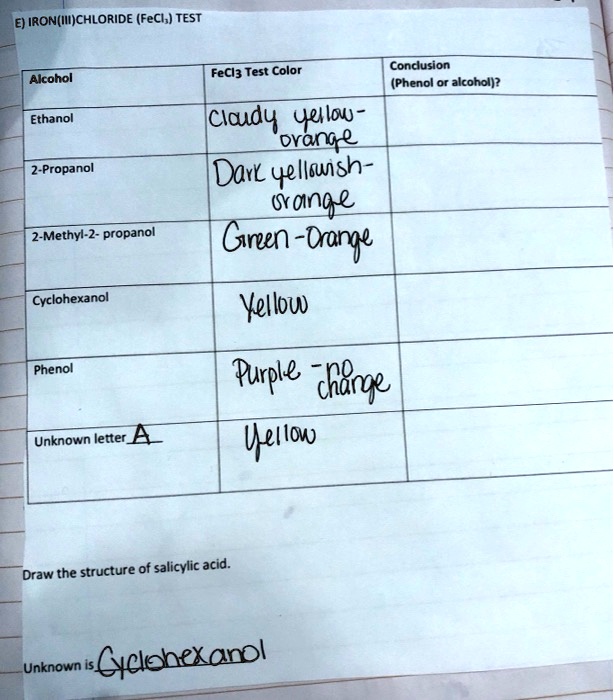 E) IRON(III)CHLORIDE (FeCl₃) TEST
Alcohol
FeCl3 Test Color
Conclusion
(Phenol or alcohol)?
Ethanol
Cloudy yellow-
orange
2-Propanol
Dark yellowish-
orange
2-Methyl-2- propanol
Green-Orange
Cyclohexanol
Yellow
Phenol
Purple - no
change
Unknown letter A
Yellow
Draw the structure of salicylic acid.
Unknown is Cyclohexanol